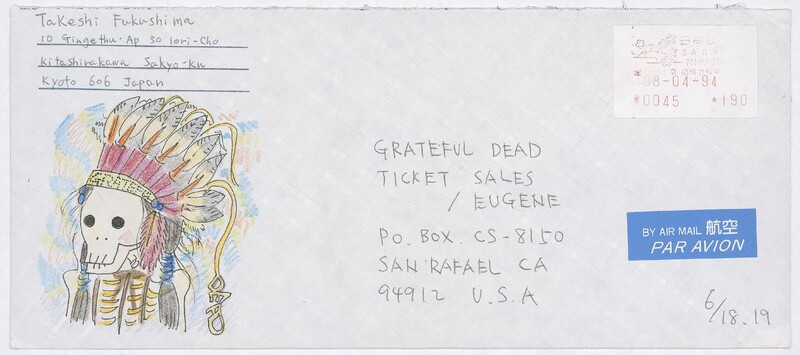 Takeshi Fukushima
10 Gingethu-Ap 30 Iori-Cho
Kitashirakawa Sakyo-ku
Kyoto 606 Japan
日本郵便
NIPPON
08-04-94
#0045 *190
GRATEFUL DEAD
TICKET SALES
/ EUGENE
P.O. BOX. CS-8150
SAN RAFAEL CA
94912 U.S.A
BY AIR MAIL 航空
PAR AVION
6/18.19